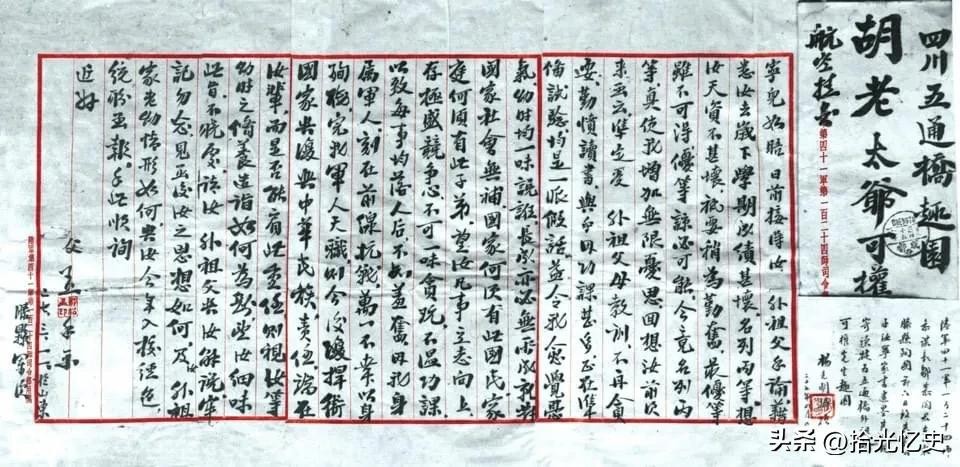 四川五通橋 趣園
胡老太爺可權
航空挂号
第四十一軍第一百二十四師司令
寧兒如晤 日前接得汝 外祖父手諭藉
悉汝去歲下學期以成績甚壞名列丙等想
汝天資不甚壞祇要稍為勤奮最優等
雖不可得優等諒必可能今竟名列丙
等真使我增加無限憂思回想汝前次
来函云準定受 外祖父母教訓不再貪
耍勤慎讀書功課甚多並在準
備試驗均是一派假話益令我愈覺
氣幼時均一味說謊長必無所成就對
國家社會無補國家何須有此國民家
庭何須有此子弟望汝凡事立志向上
存極盛競争心不可一味貪玩不温功課
以致每事均落人后不知羞奮我身
属軍人刻在前線抗戰萬一不幸以身
殉職完我軍人天職則今後捍衛
國家與復興中華民族責任端在
汝輩而是否能肩此重任則視汝等
幼時之脩養造詣如何為斷細味
此旨不晓處請汝 外祖父與汝解說牢
記勿忘見函後汝之思想如何及 外祖
家老幼情形如何與汝今年入校
統盼函報手此順詢
近好
父 王 手示
三 一 於山東
滕縣軍次
头条 @拾光忆史